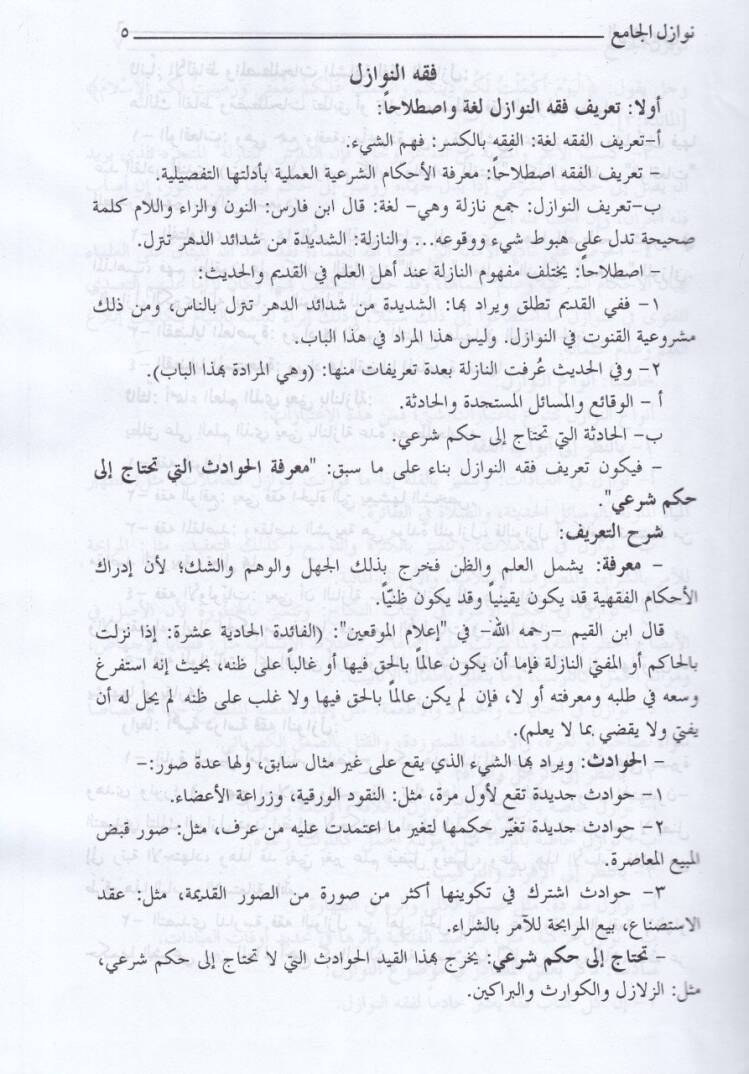 نوازل الجامع ٥
فقه النوازل
أولا: تعريف فقه النوازل لغة واصطلاحاً:
أ-تعريف الفقه لغة: الفِقه بالكسر: فهم الشيء.
- تعريف الفقه اصطلاحاً: معرفة الأحكام الشرعية العملية بأدلتها التفصيلية.
ب-تعريف النوازل: جمع نازلة وهي- لغة: قال ابن فارس: النون والزاء واللام كلمة
صحيحة تدل على هبوط شيء ووقوعه... والنازلة: الشديدة من شدائد الدهر تنزل.
- اصطلاحاً: يختلف مفهوم النازلة عند أهل العلم في القديم والحديث:
١- ففي القديم تطلق ويراد بها: الشديدة من شدائد الدهر تنزل بالناس، ومن ذلك
مشروعية القنوت في النوازل. وليس هذا المراد في هذا الباب.
٢- وفي الحديث عُرفت النازلة بعدة تعريفات منها: (وهي المرادة بهذا الباب).
أ - الوقائع والمسائل المستجدة والحادثة.
ب- الحادثة التي تحتاج إلى حكم شرعي.
- فيكون تعريف فقه النوازل بناء على ما سبق: "معرفة الحوادث التي تحتاج إلى
حكم شرعي".
شرح التعريف:
- معرفة: يشمل العلم والظن فخرج بذلك الجهل والوهم والشك؛ لأن إدراك
الأحكام الفقهية قد يكون يقينياً وقد يكون ظنيّاً.
قال ابن القيم -رحمه الله- في "إعلام الموقعين": (الفائدة الحادية عشرة: إذا نزلت
بالحاكم أو المفتي النازلة فإما أن يكون عالماً بالحق فيها أو غالباً على ظنه، بحيث إنه استفرغ
وسعه في طلبه ومعرفته أو لا، فإن لم يكن عالماً بالحق فيها ولا غلب على ظنه لم يحل له أن
يفتي ولا يقضي بما لا يعلم).
- الحوادث: ويراد بها الشيء الذي يقع على غير مثال سابق، ولها عدة صور:-
١- حوادث جديدة تقع لأول مرة، مثل: النقود الورقية، وزراعة الأعضاء.
٢- حوادث جديدة تغيّر حكمها لتغير ما اعتمدت عليه من عرف، مثل: صور قبض
المبيع المعاصرة.
٣- حوادث اشترك في تكوينها أكثر من صورة من الصور القديمة، مثل: عقد
الاستصناع، بيع المرابحة للآمر بالشراء.
- تحتاج إلى حكم شرعي: يخرج بهذا القيد الحوادث التي لا تحتاج إلى حكم شرعي،
مثل: الزلازل والكوارث والبراكين.